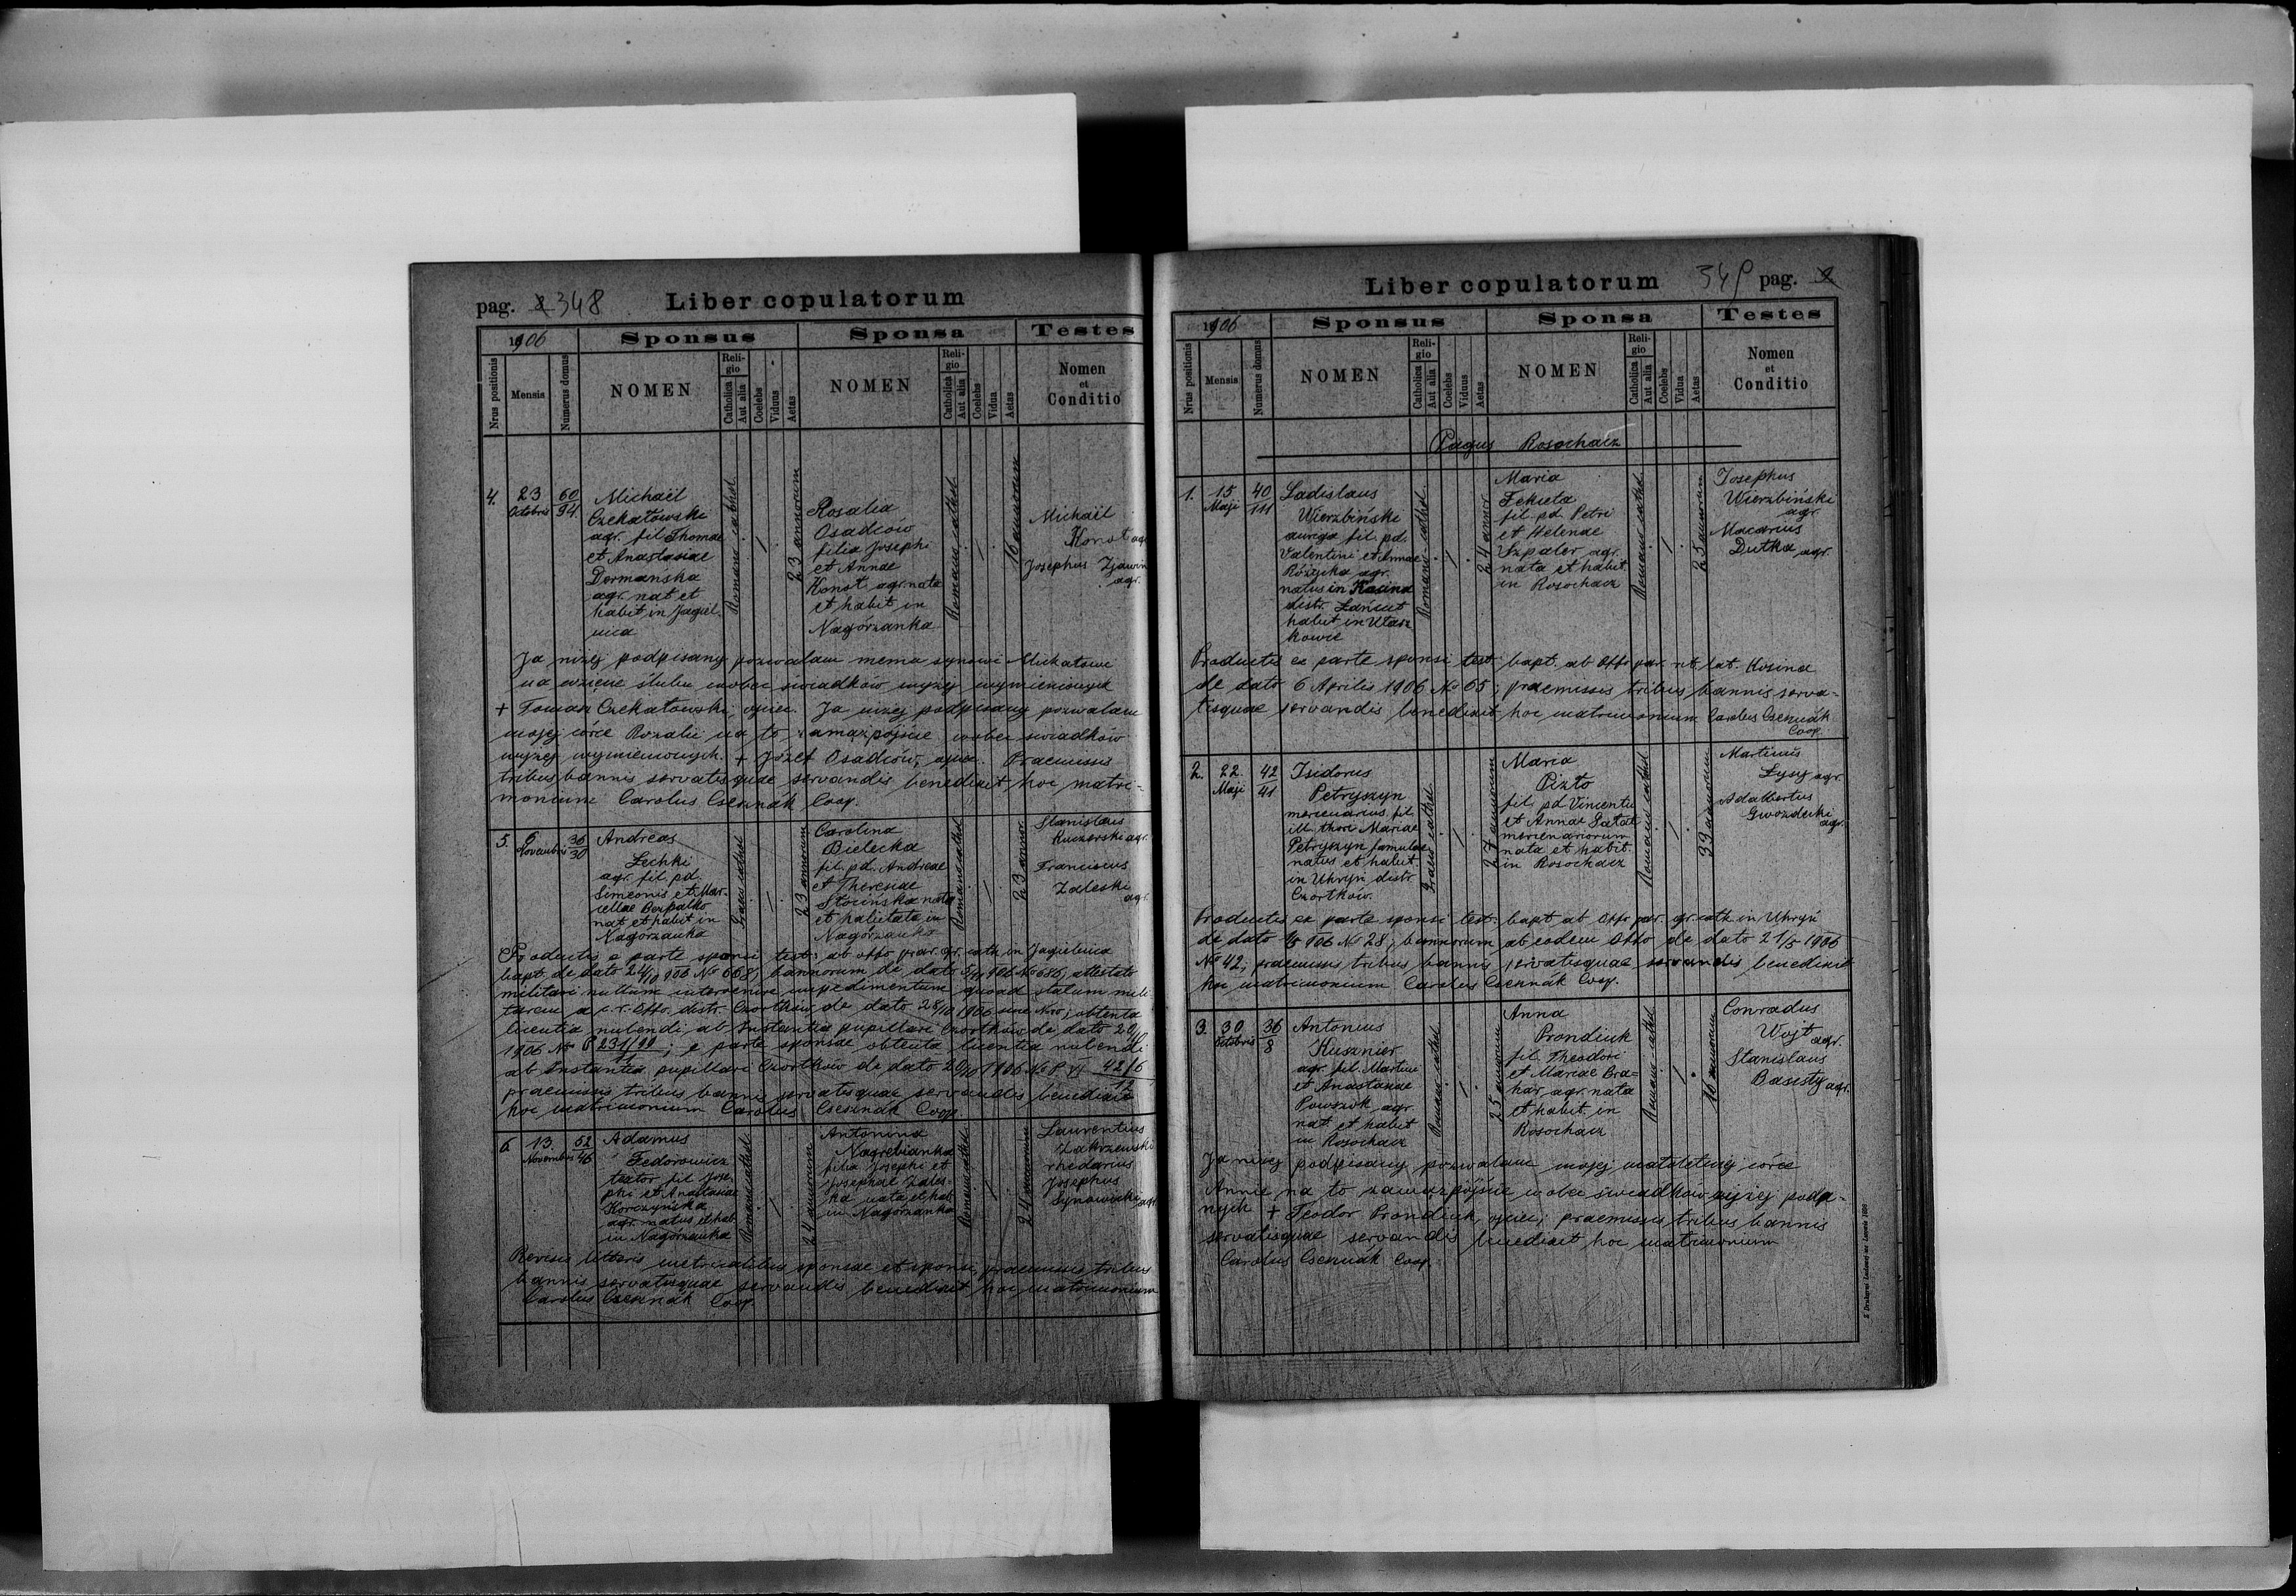 pag. 2 348 Liber copulatorum
1906 Sponsus Sponsa Testes
Nrus positionis Mensis Numerus domus NOMEN Religio Catholica Aut alia Coelebs Viduus Aetas NOMEN Religio Catholica Aut alia Coelebs Vidua Aetas Nomen et Conditio
4. 23 Octobris 60/94
Michaël
Czekałowski
agr. fil Thomae
et Anastasiae
Dermanska
agr. nat et
habit in Jagiel
nica
Romano cathol.
23 annorum
Rosalia
Osadców
filia Josephi
et Annae
Konot agr. nata
et habit in
Nagórzanka
Romano cathol
16 annorum
Michaël
Konot agr
Josephus Zjawin
agr.
Ja niżej podpisany pozwalam memu synowi Michałowi
na wzięcie ślubu wobec świadków wyżej wymienionych
+ Tomasz Czekałowski, ojciec. Ja niżej podpisany pozwalam
mojej córce Rozalii na to zamążpójście wobec świadków
wyżej wymienionych. + Józef Osadców, ojciec. Praemissis
tribus bannis servatisquae servandis benedixit hoc matri-
monium Carolus Csesznák Coop.
5. 6 Novembris 36/30
Andreas
Lechki
agr. fil. pd.
Simeonis et Mar-
cellae Bezpalko
nat et habit in
Nagórzanka
Graeco cathol
23 annorum
Carolina
Bielecka
fil. pd. Andreae
et Theresiae
Słowinska nata
et habitata in
Nagórzanka
Romano cathol
23 annor.
Stanislaus
Kuczerski agr.
Franciscus
Zaleski
agr.
Productis e parte sponsi test: ab offo par. gr. cath. in Jagielnica
bapt. de dato 24/10 906 No 668, bannorum de dato 5/11 906 No 686, attestato
militari nullum intervenire impedimentum quoad statum mili
tarem a c. r. Offo. distr. Czortków de dato 28/10 1906 sine Nro; obtenta
licentia nubendi ab Instantia pupillari Czortków de dato 20/10
1906 No P 231/99/11; e parte sponsae obtenta licentia nubendi
ab Instantia pupillari Czortków de dato 20/10 1906 No P. VI 42/6/12
praemissis tribus bannis servatisquae servandis benedixit
hoc matrimonium Carolus Csesznák Coop.
6 13 Novembris 52/46
Adamus
Fedorowicz
textor fil Jose-
phi et Anastasiae
Korczyńska
agr. natus et hab.
in Nagórzanka
Romano cathol
24 annorum
Antonina
Nagrebianka
filia Josephi et
Josephae Zales-
ka nata et hab.
in Nagórzanka
Romano cathol
24 annorum
Laurentius
Zakrzewski
rhedarius
Josephus
Synowicki agr
Revisis litteris metricalibus sponsae et sponsi, praemissis tribus
bannis servatisquae servandis benedixit hoc matrimonium
Carolus Csesznák Coop.
Liber copulatorum 349 pag. 2
1906 Sponsus Sponsa Testes
Nrus positionis Mensis Numerus domus NOMEN Religio Catholica Aut alia Coelebs Viduus Aetas NOMEN Religio Catholica Aut alia Coelebs Vidua Aetas Nomen et Conditio
Pagus Rosochacz
1. 15 Maji 40/111
Ladislaus
Wierzbiński
auriga fil. pd.
Valentini et Annae
Różycka agr.
natus in Kosina
distr. Łańcut
habit in Ułasz
kowce
Romano cathol.
24 annor
Maria
Fekieta
fil. pd. Petri
et Helenae
Szpaler agr.
nata et habit
in Rosochacz
Romano cathol
25 annorum
Josephus
Wierzbiński
agr.
Macarius
Dutka agr.
Productis ex parte sponsi test: bapt. ab Offo par. rit. lat. Kosina
de dato 6 Aprilis 1906 No 65; praemissis tribus bannis serva-
tisquae servandis benedixit hoc matrimonium Carolus Csesznák
Coop.
2. 22. Maji 42/41
Isidorus
Petryszyn
mercenarius fil.
ill. thori Mariae
Petryszyn famulae
natus et habit.
in Uhryń distr
Czortków.
Graeco cathol
27 annorum
Maria
Pizto
fil. pd Vincentii
et Annae Sałat
mercenariorum
nata et habit.
in Rosochacz
Romano cathol
33 annorum
Martinus
Łysy agr.
Adalbertus
Gwozdecki
agr.
Productis ex parte sponsi test: bapt ab Offo par. gr. cath. in Uhryń
de dato 906 No 28; bannorum ab eodem Offo de dato 21/5 1906
No 42; praemissis tribus bannis servatisquae servandis benedixit
hoc matrimonium Carolus Csesznák Coop.
3. 30 Octobris 36/8
Antonius
Kusznier
agr. fil. Martini
et Anastasiae
Powszok agr.
nat. et habit
in Rosochacz
Romano cathol
25 annorum
Anna
Prondiuk
fil. Theodori
et Mariae Bra=
har agr. nata
et habit. in
Rosochacz
Romano cathol
16 annorum
Conradus
Wojt agr.
Stanislaus
Basisty agr.
Ja niżej podpisany pozwalam mojej małoletniej córce
Annie na to zamążpójście wobec świadków wyżej podp-
nych + Teodor Prondiuk, ojciec; praemissis tribus bannis
servatisquae servandis benedixit hoc matrimonium
Carolus Csesznák Coop.